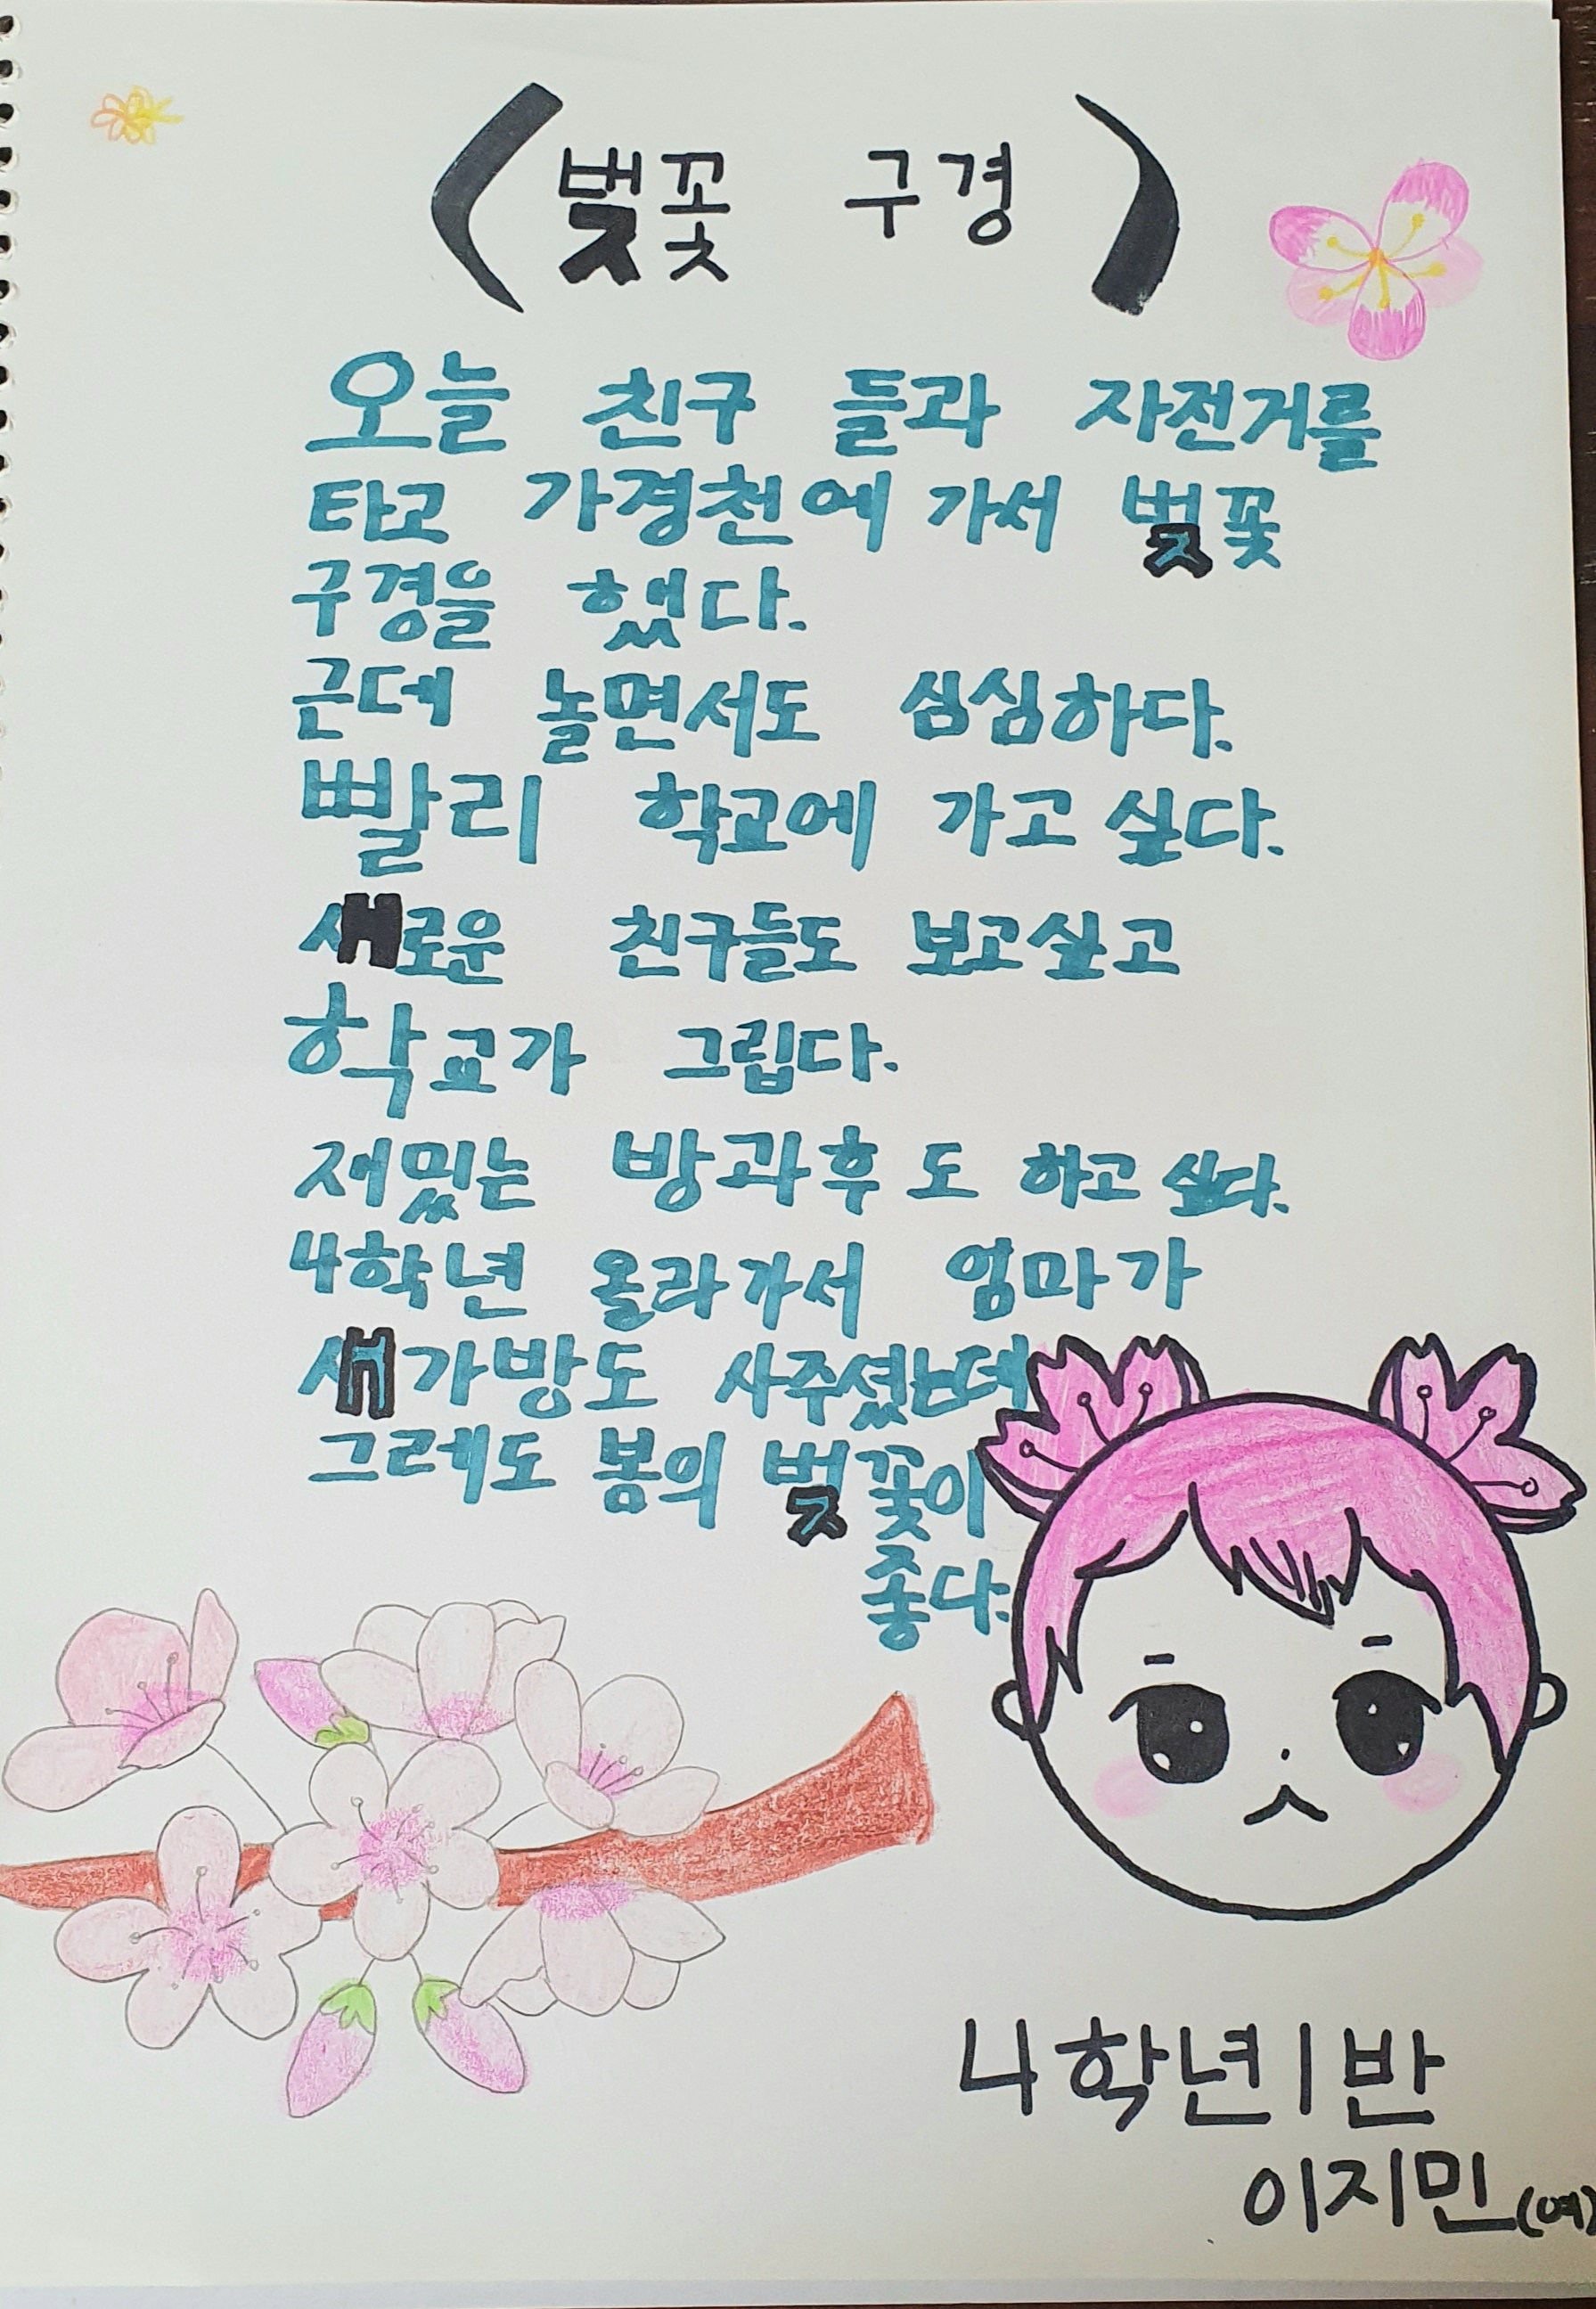 (벚꽃 구경)
오늘 친구 들과 자전거를
타고 가경천에 가서 벚꽃
구경을 했다.
근데 놀면서도 심심하다.
빨리 학교에 가고 싶다.
새로운 친구들도 보고싶고
학교가 그립다.
재밌는 방과후도 하고 싶다.
4학년 올라가서 엄마가
새가방도 사주셨는데
그레도 봄의 벚꽃이
좋다.
4학년 1반
이지민(여)